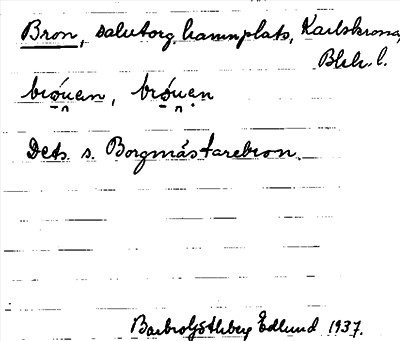 Bron, salutorg, hamnplats, Karlskrona,
Blek. l.
bróuen, bróuen
Dets. s. Borgmästarebron.
Barbro Göthberg Edlund 1937.